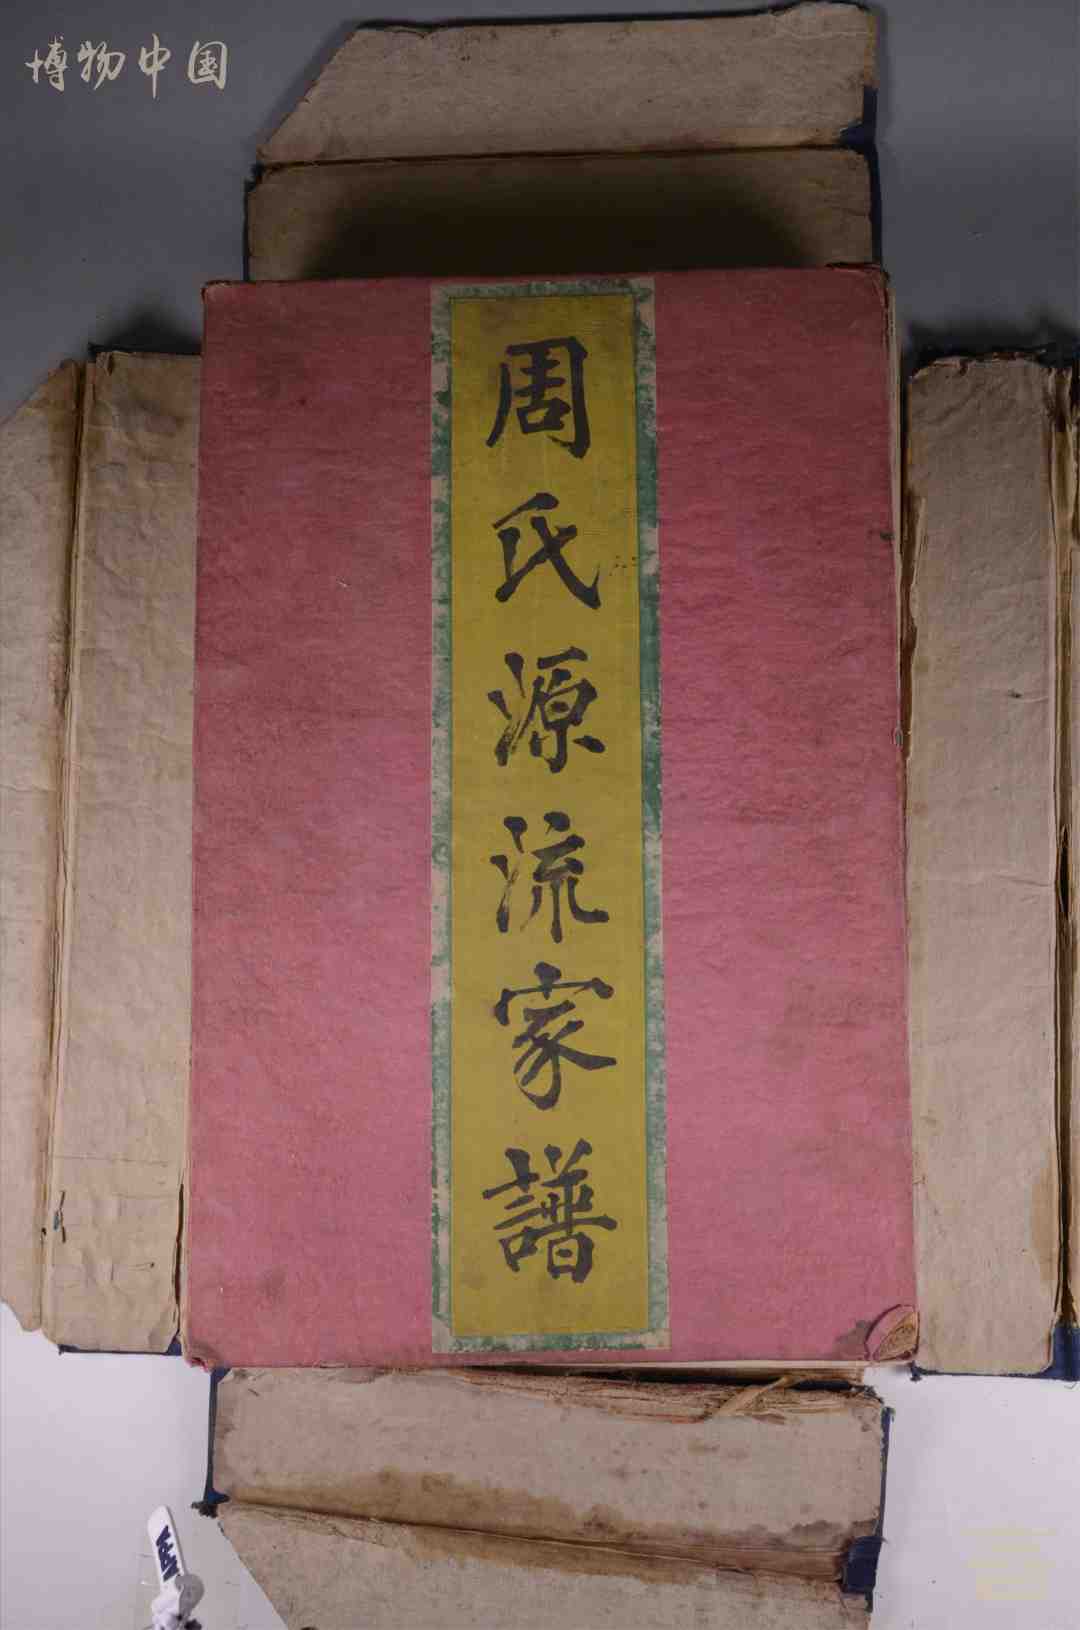 博物中国
周氏源流家譜